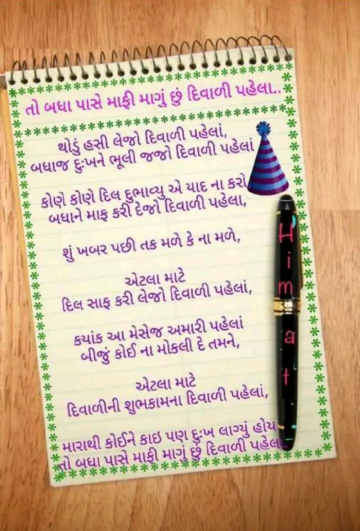 તો બધા પાસે માફી માગું છું દિવાળી પહેલા..
થોડું હસી લેજો દિવાળી પહેલાં,
બધાજ દુઃખને ભૂલી જજો દિવાળી પહેલાં
કોણે કોણે દિલ દુભાવ્યુ એ યાદ ના કરો
બધાને માફ કરી દેજો દિવાળી પહેલા,
શું ખબર પછી તક મળે કે ના મળે,
એટલા માટે
દિલ સાફ કરી લેજો દિવાળી પહેલાં,
કયાંક આ મેસેજ અમારી પહેલાં
બીજું કોઈ ના મોકલી દે તમને,
એટલા માટે
દિવાળીની શુભકામના દિવાળી પહેલાં,
મારાથી કોઈને કાઇ પણ દુઃખ લાગ્યું હોય
તો બધા પાસે માફી માગું છું દિવાળી પહેલાં
Himat